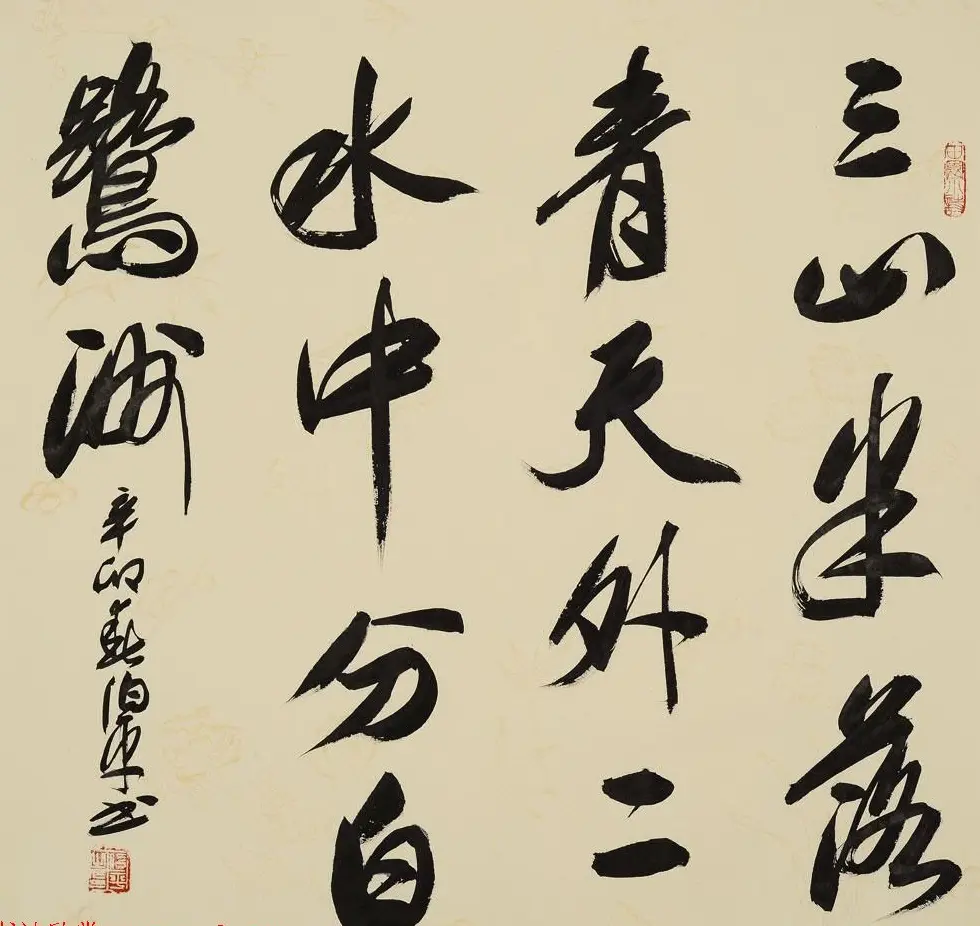 三山半落
青天外二
水中分白
鷺洲
辛卯春伯軍书